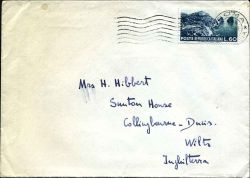 POSTE REPUBBLICA ITALIANA L.60
Mrs H. Hibbert
Sunton House
Collingbourne-Ducis.
Wilts
Inghilterra